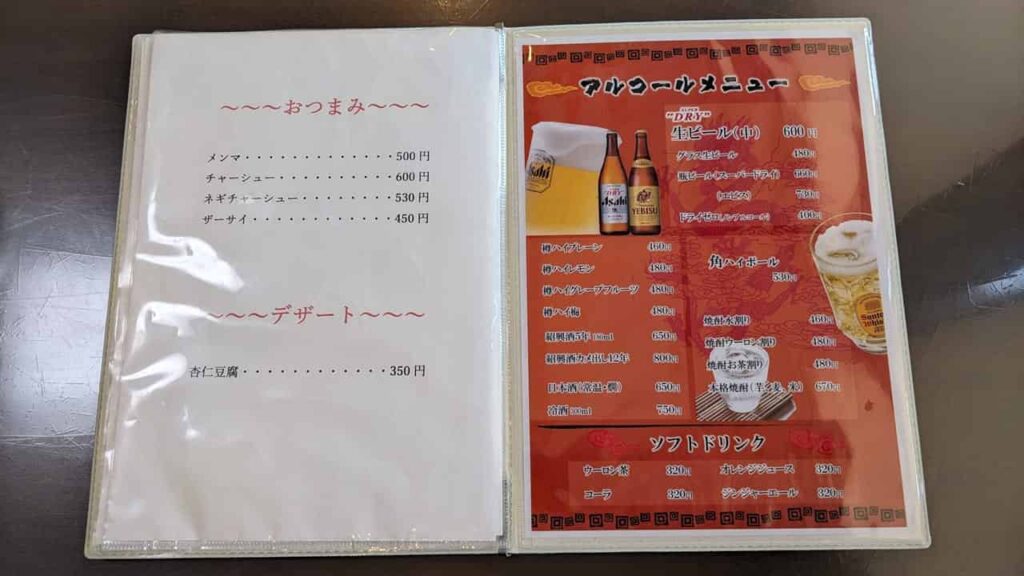 ～～～おつまみ～～～
メンマ・・・・・・・・・・・・・・500円
チャーシュー・・・・・・・・・・・600円
ネギチャーシュー・・・・・・・・・530円
ザーサイ・・・・・・・・・・・・・450円
～～～デザート～～～
杏仁豆腐・・・・・・・・・・・・350円
アルコールメニュー
SUPER "DRY"
生ビール(中) 600円
グラス生ビール 480円
瓶ビール(スーパードライ) 660円
(エビス) 730円
ドライゼロ(ノンアルコール) 400円
Asahi
DRY
Asahi
YEBISU
樽ハイプレーン 460円
樽ハイレモン 480円
樽ハイグレープフルーツ 480円
樽ハイ梅 480円
紹興酒5年 180ml 650円
紹興酒カメ出し12年 800円
日本酒(常温・燗) 650円
冷酒 300ml 750円
角ハイボール
530円
焼酎水割り 460円
焼酎ウーロン割り 480円
焼酎お茶割り 480円
本格焼酎(芋・麦・米) 670円
ソフトドリンク
ウーロン茶 320円
オレンジジュース 320円
コーラ 320円
ジンジャーエール 320円